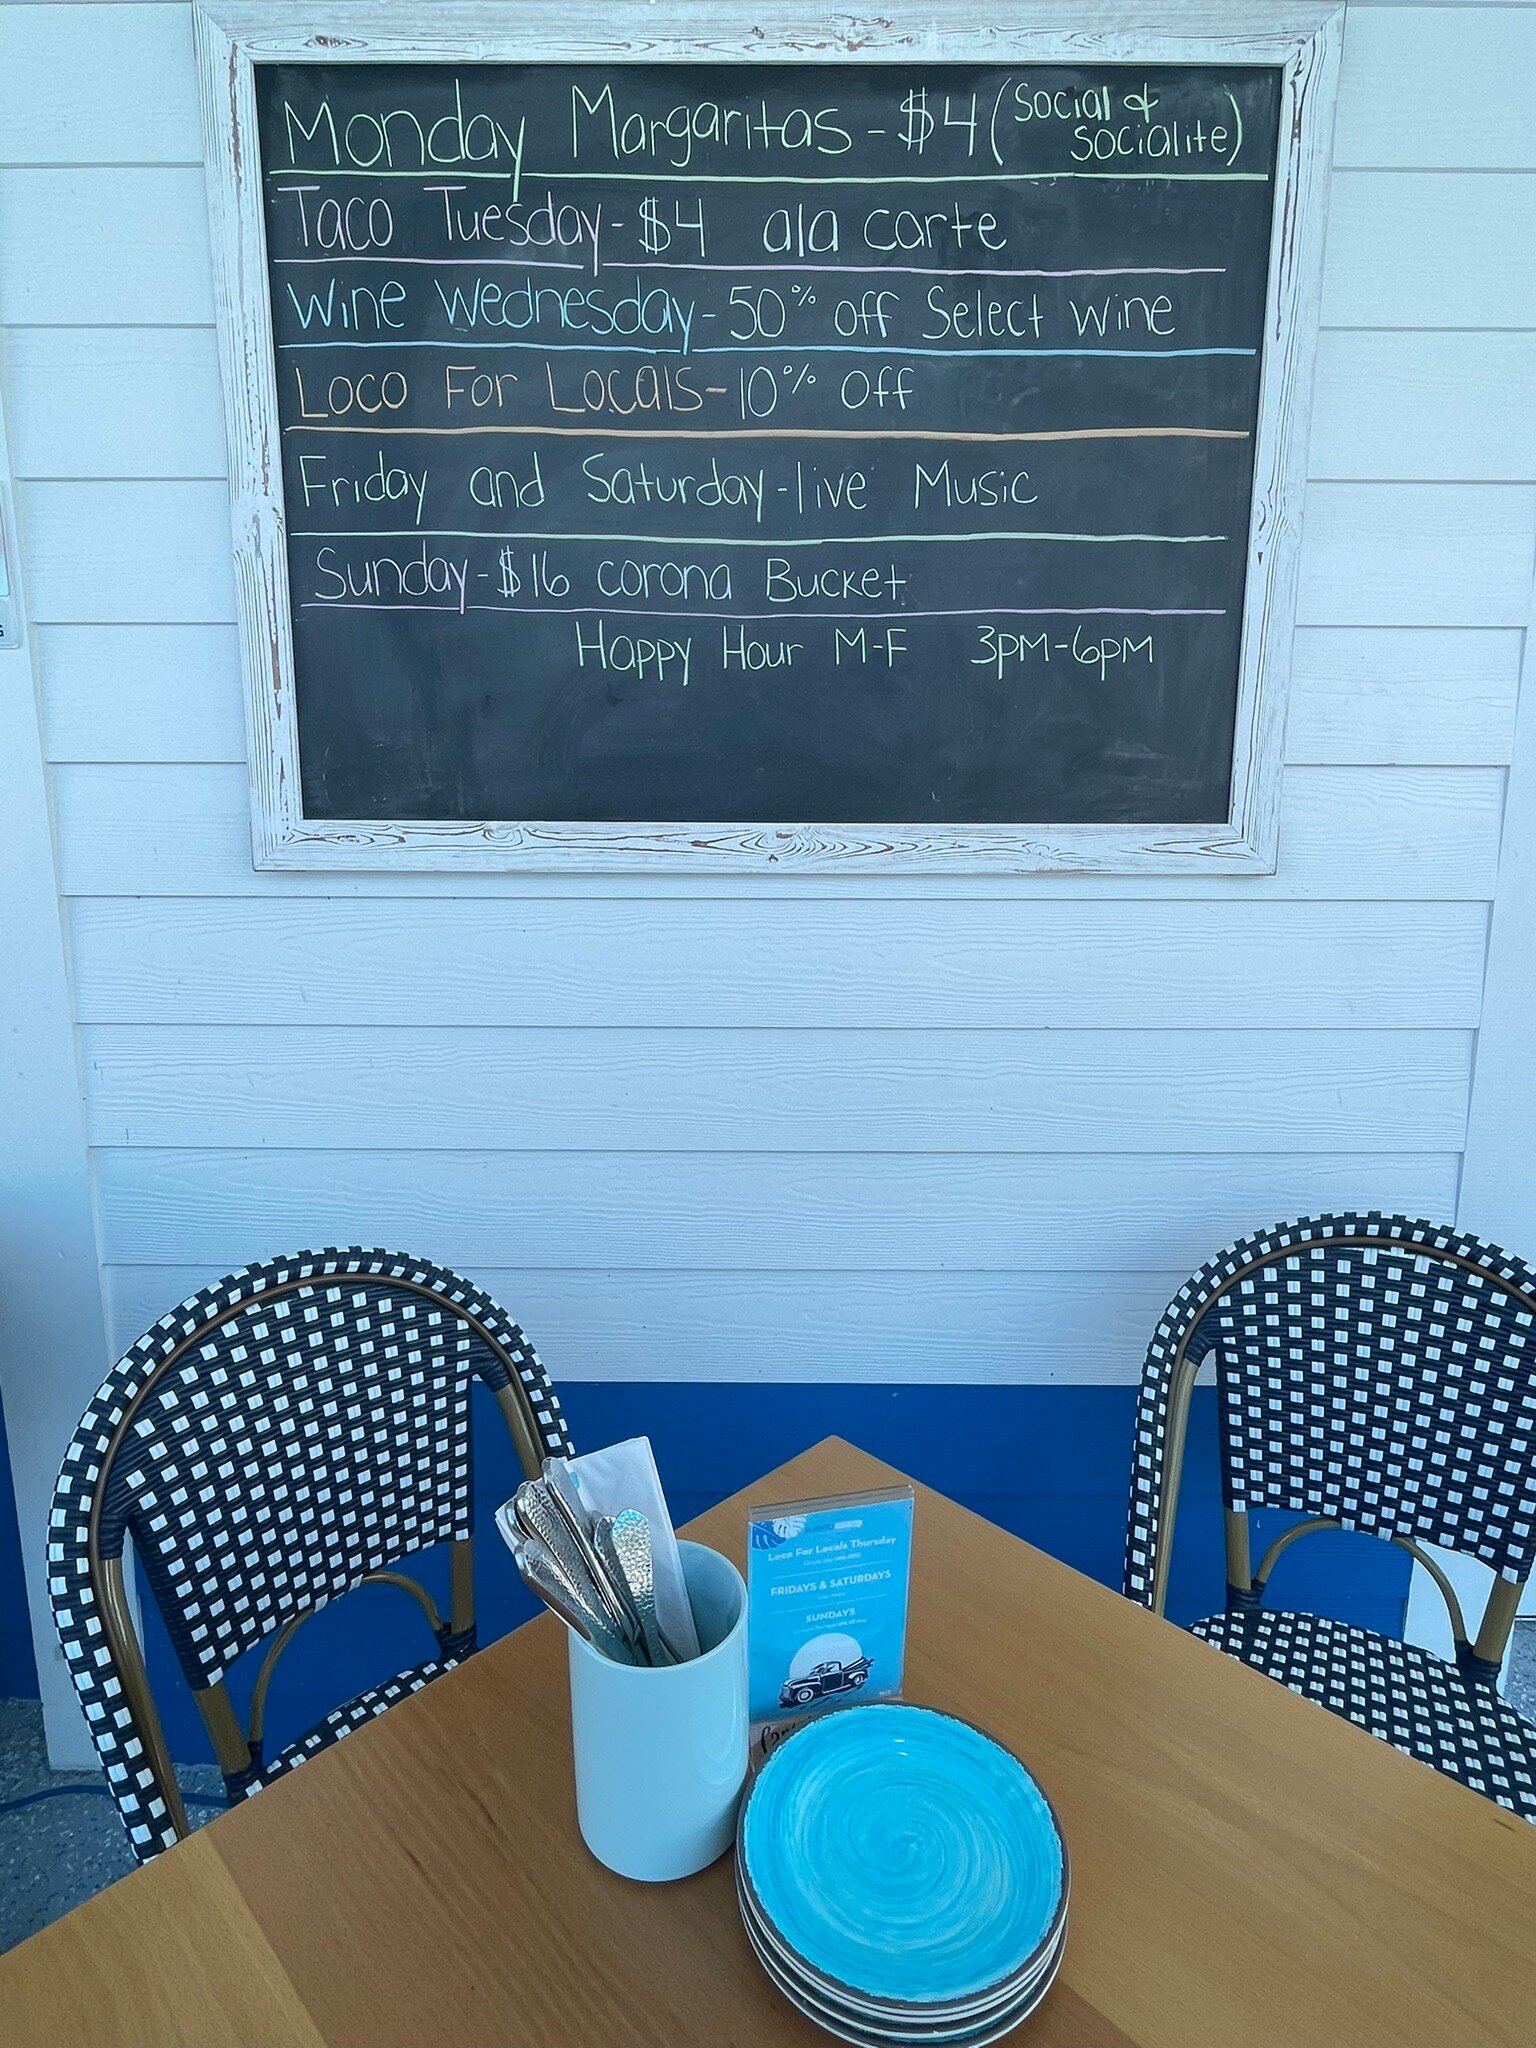 Monday Margaritas - $4 (Social & Socialite)
Taco Tuesday - $4 ala carte
Wine Wednesday - 50% off Select Wine
Loco For Locals - 10% Off
Friday and Saturday - live Music
Sunday - $16 corona Bucket
Happy Hour M-F 3PM-6PM
Loco For Locals Thursday
FRIDAYS & SATURDAYS
SUNDAYS